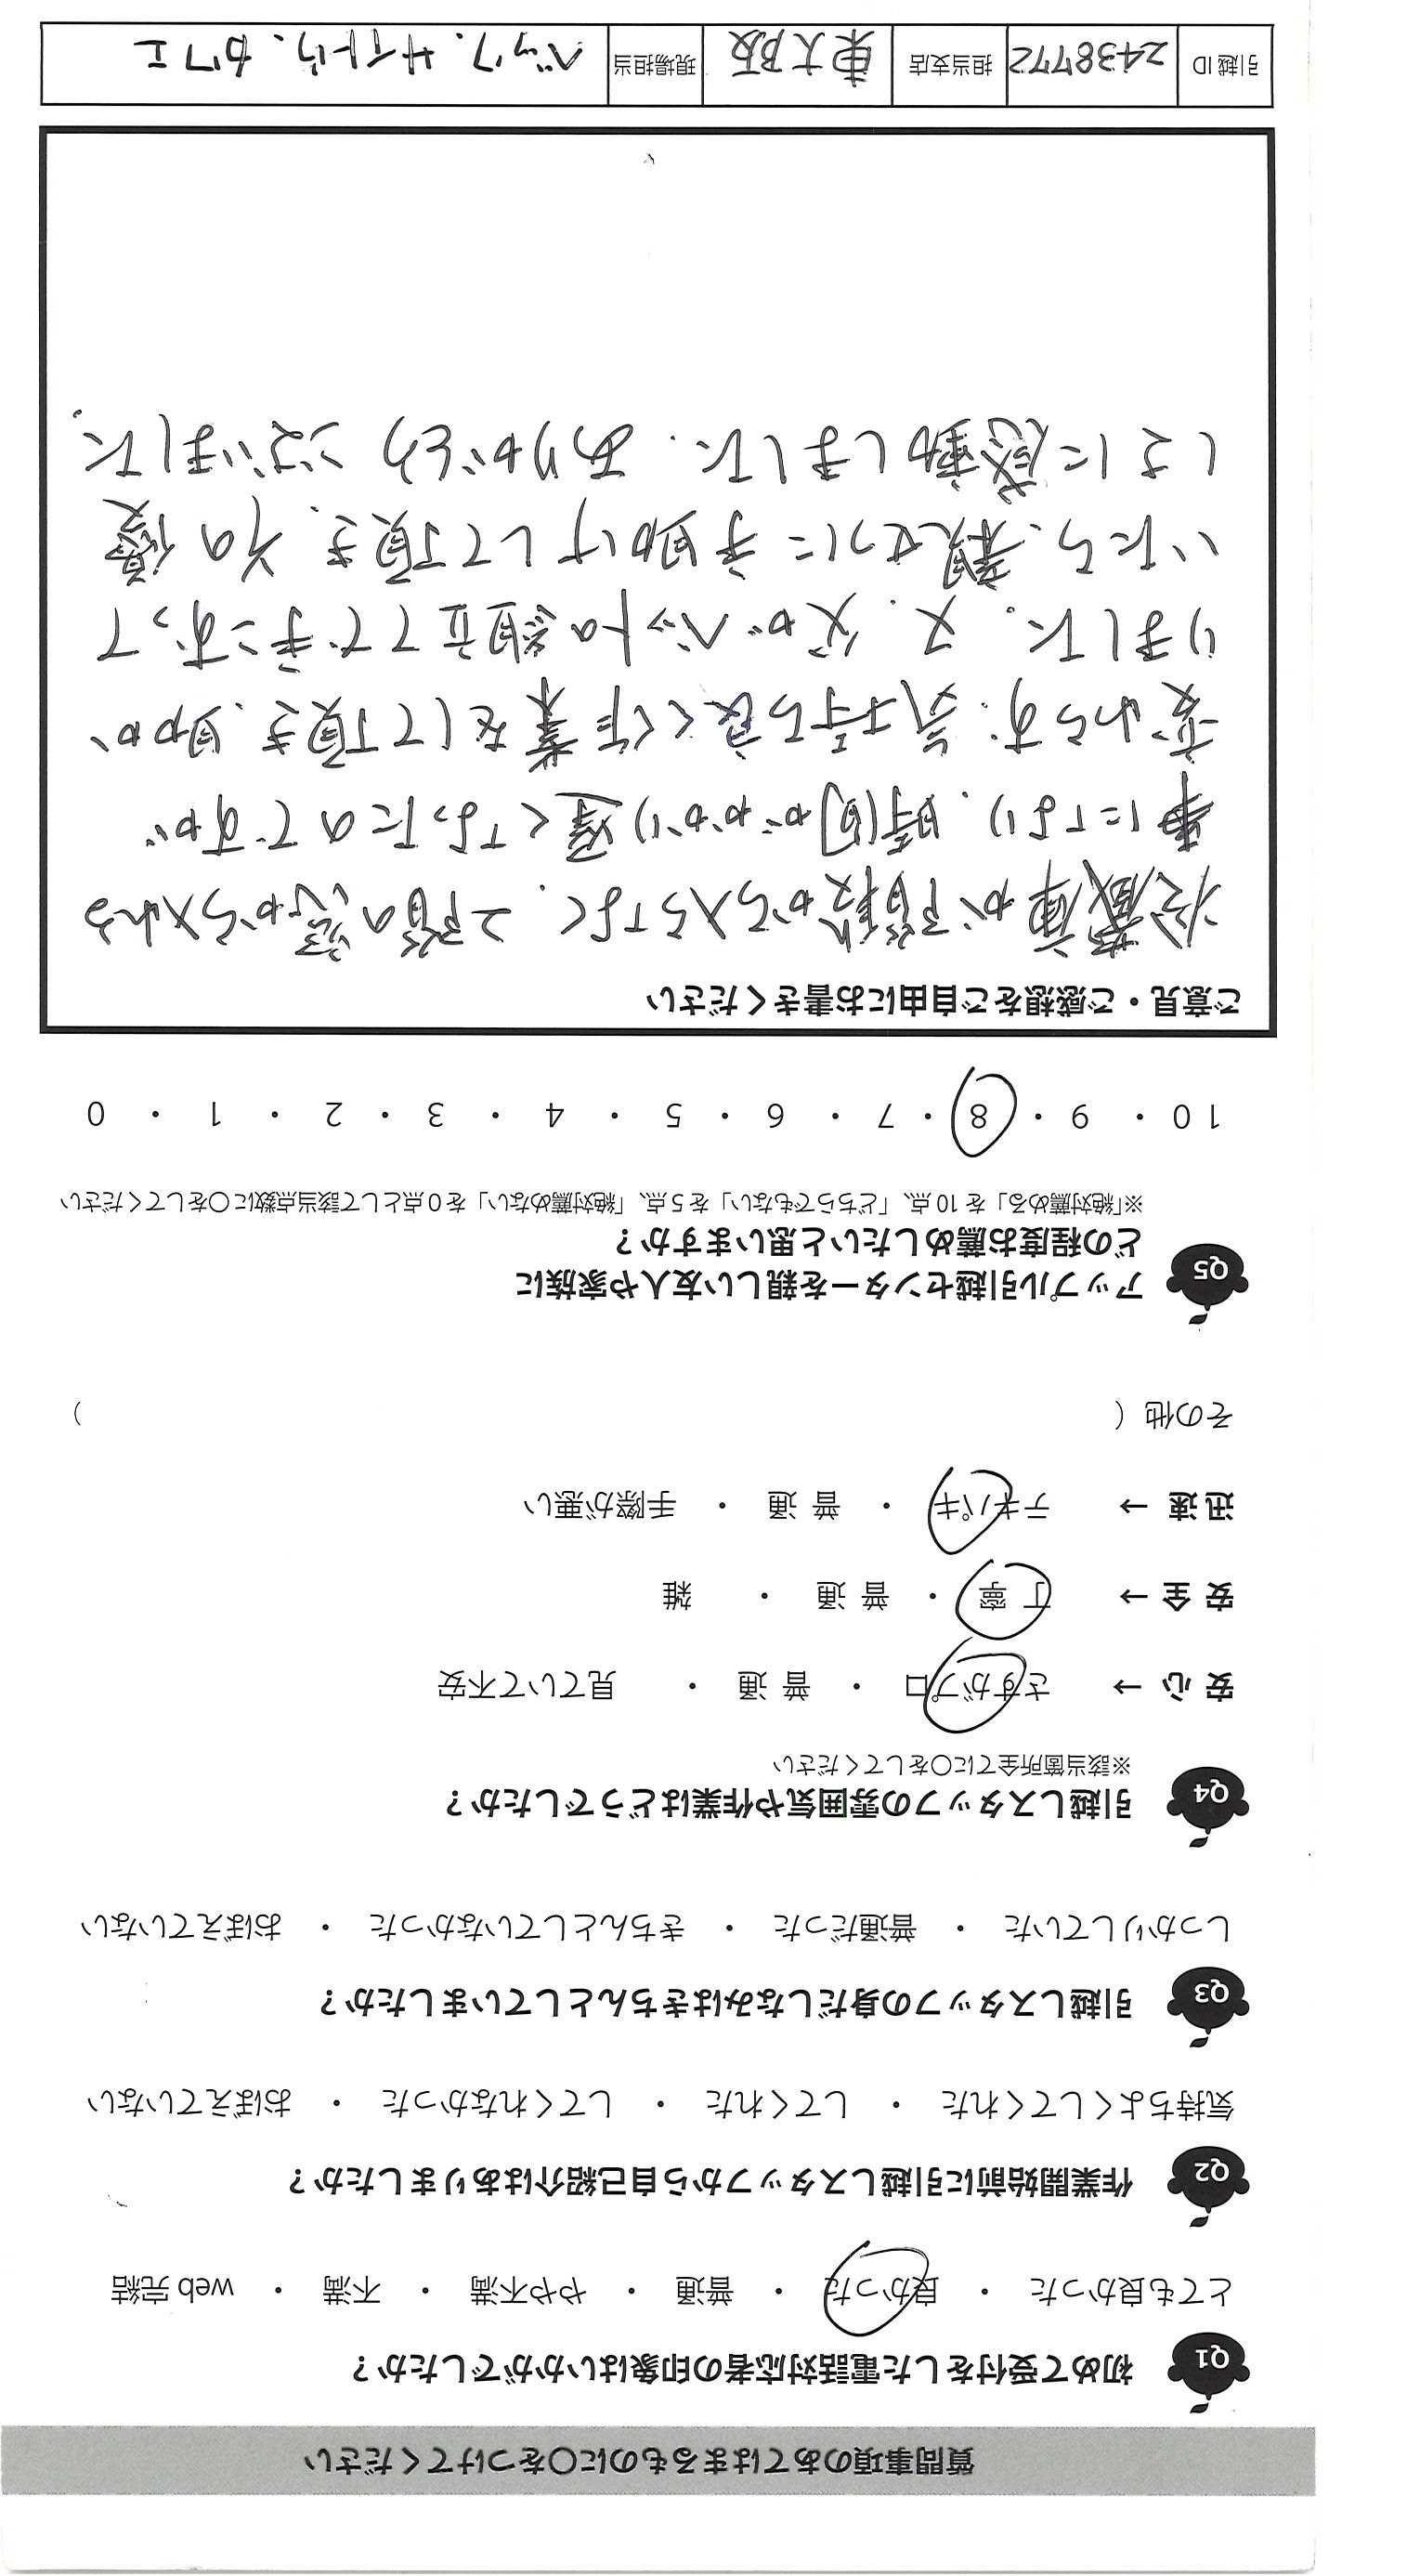 質問事項のあてはまるものに〇をつけてください
Q1 初めて受付をした電話対応者の印象はいかがでしたか？
とても良かった ・ 良かった ・ 普通 ・ やや不満 ・ 不満 ・ web 完結
Q2 作業開始前に引越しスタッフから自己紹介はありましたか？
気持ちよくしてくれた ・ してくれた ・ してくれなかった ・ おぼえていない
Q3 引越しスタッフの身だしなみはきちんとしていましたか？
しっかりしていた ・ 普通だった ・ きちんとしていなかった ・ おぼえていない
Q4 引越しスタッフの雰囲気や作業はどうでしたか？
※該当箇所全てに〇をしてください
安心 → さすがプロ ・ 普通 ・ 見ていて不安
安全 → 丁寧 ・ 普通 ・ 雑
迅速 → テキパキ ・ 普通 ・ 手際が悪い
その他（ ）
Q5 アップル引越センターを親しい友人や家族に
どの程度お薦めしたいと思いますか？
※「絶対薦める」を 10 点、「どちらでもない」を 5 点、「絶対薦めない」を 0 点として該当点数に〇をしてください
10 ・ 9 ・ 8 ・ 7 ・ 6 ・ 5 ・ 4 ・ 3 ・ 2 ・ 1 ・ 0
ご意見・ご感想をご自由にお書きください
冷蔵庫が階段から入らなく、2階の窓から入れる
事になり、時間がかかり遅くなったのですが
変わらず、気持ち良く作業をして頂き、助か
りました。又、父がベットの組立てで手こずって
いたら、親せつに手助けして頂き、その優
しさに感動しました。ありがとうございました。
引越 ID 2438772 担当支店 東大阪 現場担当 ベック、サイトウ、カワエ